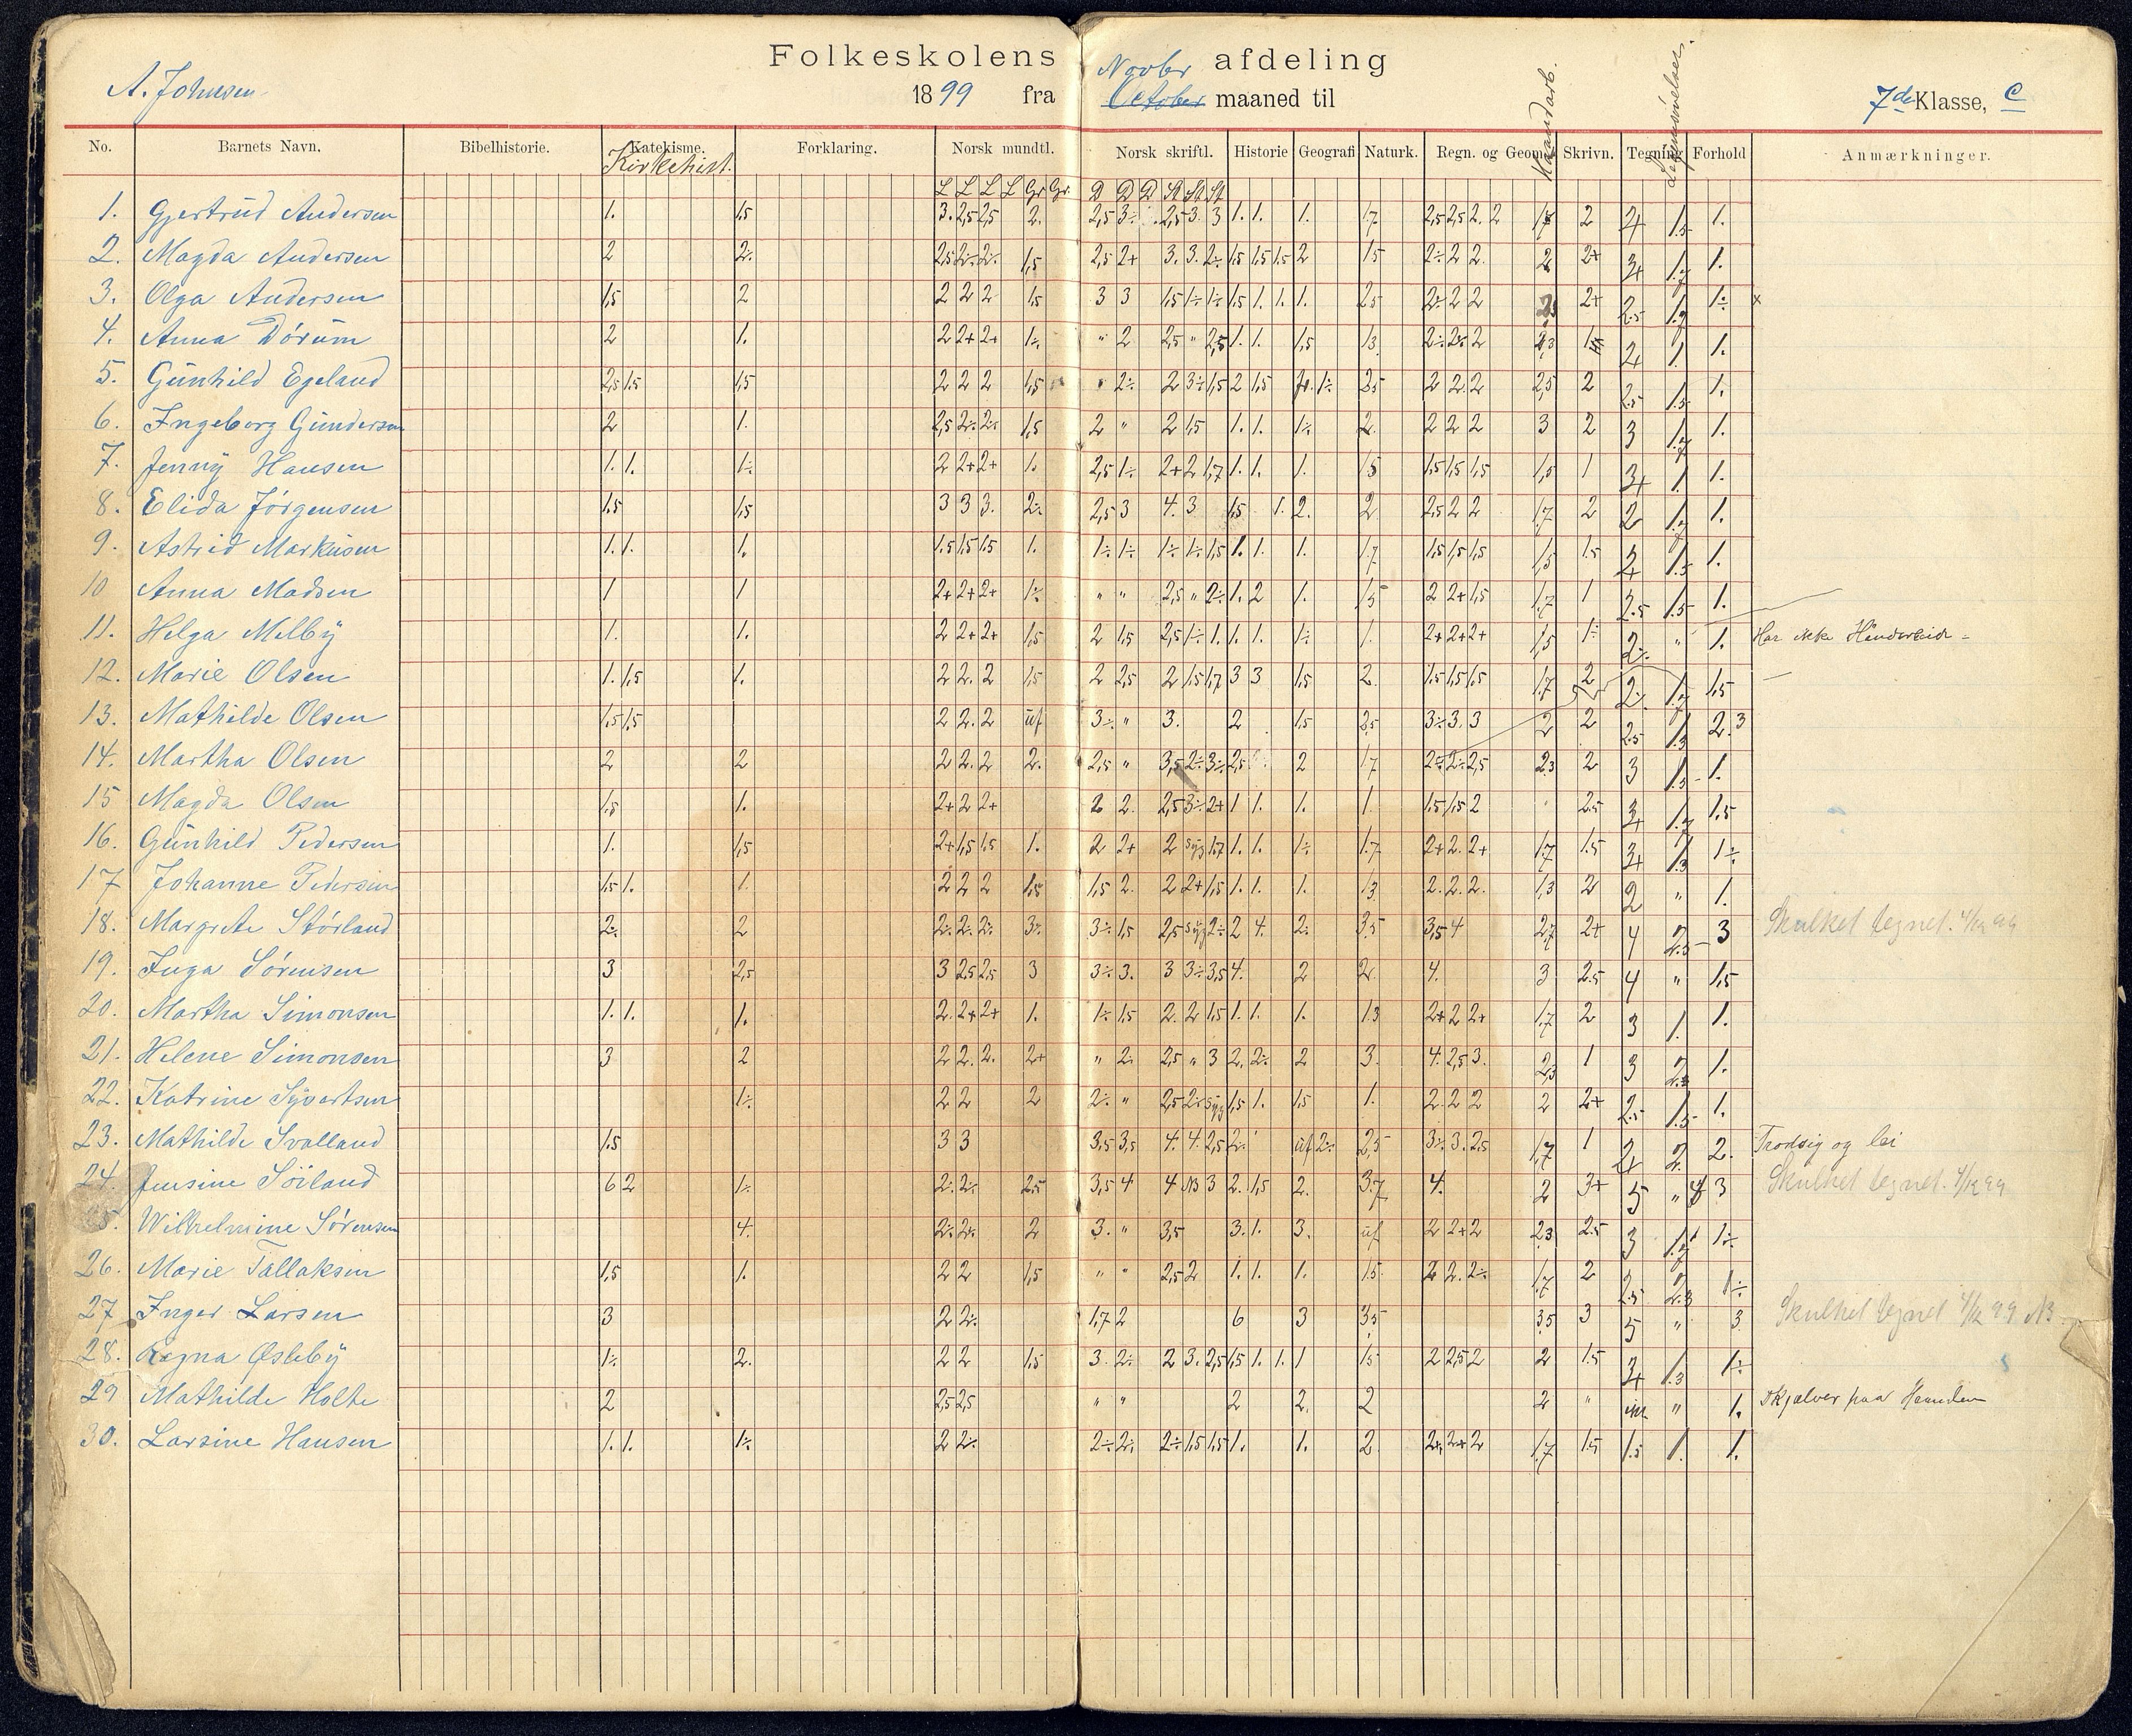 Folkeskolens Novbr afdeling
A. Johnsen 1899 fra October maaned til 7de Klasse, C
No. Barnets Navn. Bibelhistorie. Katekisme. Forklaring. Norsk mundtl. Norsk skriftl. Historie Geografi Naturk. Regn. og Geom. Haandarb. Skrivn. Tegning Legemsøvelser. Forhold Anmærkninger.
Kirkehist.
L L L L Gr. Gr. D D D St St St
1. Gjertrud Andersen 1. 1,5 3. 2,5 2,5 2. 2,5 3÷ 2,5 3. 3 1. 1. 1. 1.7 2,5 2,5 2. 2 1,5 2 2+ 1.5 1.
2. Magda Andersen 2 2÷ 2,5 2÷ 2÷ 1,5 2,5 2+ 3. 3. 2÷ 1,5 1,5 1.5 2 1.5 2÷ 2 2. 2 2+ 3+ 1.7 1.
3. Olga Andersen 1,5 2 2 2 2 1,5 3 3 1,5 1÷ 1÷ 1,5 1. 1. 1. 2,5 2÷ 2 2 2+ 2.5 1.7 1÷ x
4. Anna Dórum 2 1. 2 2+ 2+ 1÷ " 2 2,5 " 2,5 1. 1. 1,5 1.3 2÷ 2÷ 2 2,3 1.5 2+ 1. 1.
5. Gunhild Egeland 2,5 1.5 1,5 2 2 2 1,5 " 2÷ 2 3÷ 1,5 2 1,5 1÷ 2,5 2 2. 2 2,5 2 2.5 1.5 1.
6. Ingeborg Gundersen 2 1. 2,5 2÷ 2÷ 1,5 2 " 2 1,5 1. 1. 1÷ 2. 2 2 2 3 2 3 1.7 1.
7. Jenny Hansen 1. 1. 1÷ 2 2+ 2+ 1. 2,5 1÷ 2+ 2 1,7 1. 1. 1. 1.5 1.5 1.5 1.5 1,5 1 3+ 1 1.
8. Elida Jórgensen 1.5 1,5 3 3 3. 2÷ 2,5 3 4. 3 1,5 1. 2. 2 2,5 2 2 1.7 2 2 1.7 1.
9. Astrid Markusen 1. 1. 1. 1.5 1.5 1.5 1. 1÷ 1÷ 1÷ 1÷ 1,5 1. 1. 1. 1.7 1.5 1,5 1,5 1,5 1.5 2+ 1.5 1.
10 Anna Madsen 1 1 2+ 2+ 2+ 1÷ " " 2,5 " 2÷ 1. 2 1. 1.5 2 2+ 1,5 1.7 1 2.5 1.5 1.
11. Helga Melby 1. 1. 2 2+ 2+ 1,5 2 1,5 2,5 1÷ 1. 1. 1. 1÷ 1. 2+ 2+ 2+ 1,5 1÷ 2÷ " 1. Har ikke Håndarbeide
12. Marie Olsen 1. 1,5 1. 2 2. 2 1,5 2 2,5 2 1,5 1,7 3 3 1,5 2. 1.5 1.5 1.5 1.7 2 2÷ 1.7 1,5
13. Mathilde Olsen 1.5 1,5 2 2. 2 uf 3÷ " 3. 2 1,5 2,5 3÷ 3. 3 2 2 2.5 1.3 2. 3
14. Martha Olsen 2 2 2 2. 2 2. 2,5 " 3,5 2÷ 3÷ 2,5 2 1.7 2÷ 2÷ 2,5 2.3 2 3 1.5 1.
15 Magda Olsen 1.5 1. 2+ 2 2+ 2 2. 2,5 3÷ 2+ 1 1. 1. 1. 1.5 1,5 2 2.5 3+ 1.7 1,5
16. Gunhild Pedersen 1. 1,5 2+ 1,5 1.5 1. 2 2+ 2 syg 1.7 1. 1. 1÷ 1.7 2+ 2. 2+ 1.7 1.5 3+ 1.3 1÷
17 Johanne Pedersen 1,5 1. 1. 2 2 2 1,5 1,5 2. 2 2+ 1,5 1. 1. 1. 1.3 2. 2. 2. 1,3 2 2 " 1.
18. Margrete Stórland 2÷ 2 2÷ 2÷ 2÷ 3÷ 3÷ 1,5 2,5 syg 2÷ 2 4. 2÷ 3.5 3,5 4 2.7 2+ 4 2.5 3 Skulket tegnet. 4/12 99
19. Inga Sórensen 3 2,5 3 2,5 2,5 3 3÷ 3. 3 3÷ 3,5 4. 2 2. 4. 3 2.5 4 " 1,5
20. Martha Simonsen 1. 1. 1. 2. 2+ 2+ 1. 1÷ 1,5 2. 2 1,5 1. 1. 1. 1.3 2+ 2 2+ 1.7 2 3 1. 1.
21. Helene Simonsen 3 2 2 2. 2. 2+ " 2÷ 2,5 " 3 2. 2÷ 2 3. 4. 2,5 3. 2,3 1 3 1.
22. Katrine Syvertsen 1÷ 2 2 2 2÷ " 2,5 2÷ syg 1,5 1. 1,5 1. 2. 2 2 2 2+ 2.5 1.5 1.
23. Mathilde Svalland 1.5 3 3 3,5 3,5 4. 4. 2,5 2÷ uf 2÷ 2,5 3÷ 3. 2,5 1,7 1 2+ 2. 2. Trodsig og lei
24. Jensine Söiland 6 2 1÷ 2÷ 2÷ 2,5 3,5 4 4 NB 3 2. 1,5 2. 3.7 4. 2 3+ 5 " 3 Skulket tegnet. 4/12 99
5. Wilhelmine Sórensen 4. 2÷ 2÷ 2 3. " 3,5 3. 1. 3. uf 2 2+ 2 2.3 2.5 3 1.7 1÷
26. Marie Tallaksen 1,5 1. 2 2 1,5 " " 2,5 2 1. 1. 1. 1.5 2 2. 2÷ 1.7 2 2.5 2.3 1÷
27. Inger Larsen 3 2 2÷ 1.7 2 6 3 3.5 3.5 3 5 " 3 Skulket tegnet 4/12 99 NB
28. Ragna Øsleby 1÷ 2. 2 2 1,5 3. 2÷ 2 3. 2,5 1,5 1. 1. 1 1.5 2 2,5 2 2 1.5 3+ 1.3 1÷
29 Mathilde Holte 2 2,5 2,5 " " 2 2. 2 2 " " 1. Skjælver paa Haanden
30. Larsine Hansen 1. 1. 1÷ 2 2÷ 2÷ 2÷ 2÷ 1,5 1.5 1. 1. 2 2+ 2+ 2 1.7 1.5 1.5 1. 1.